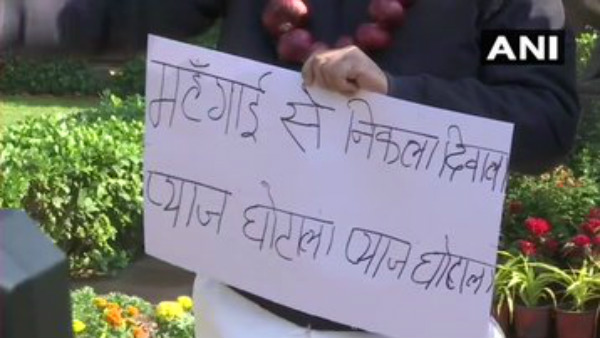 ANI
महँगाई से निकला दिवाला
प्याज घोटाला प्याज घोटाला